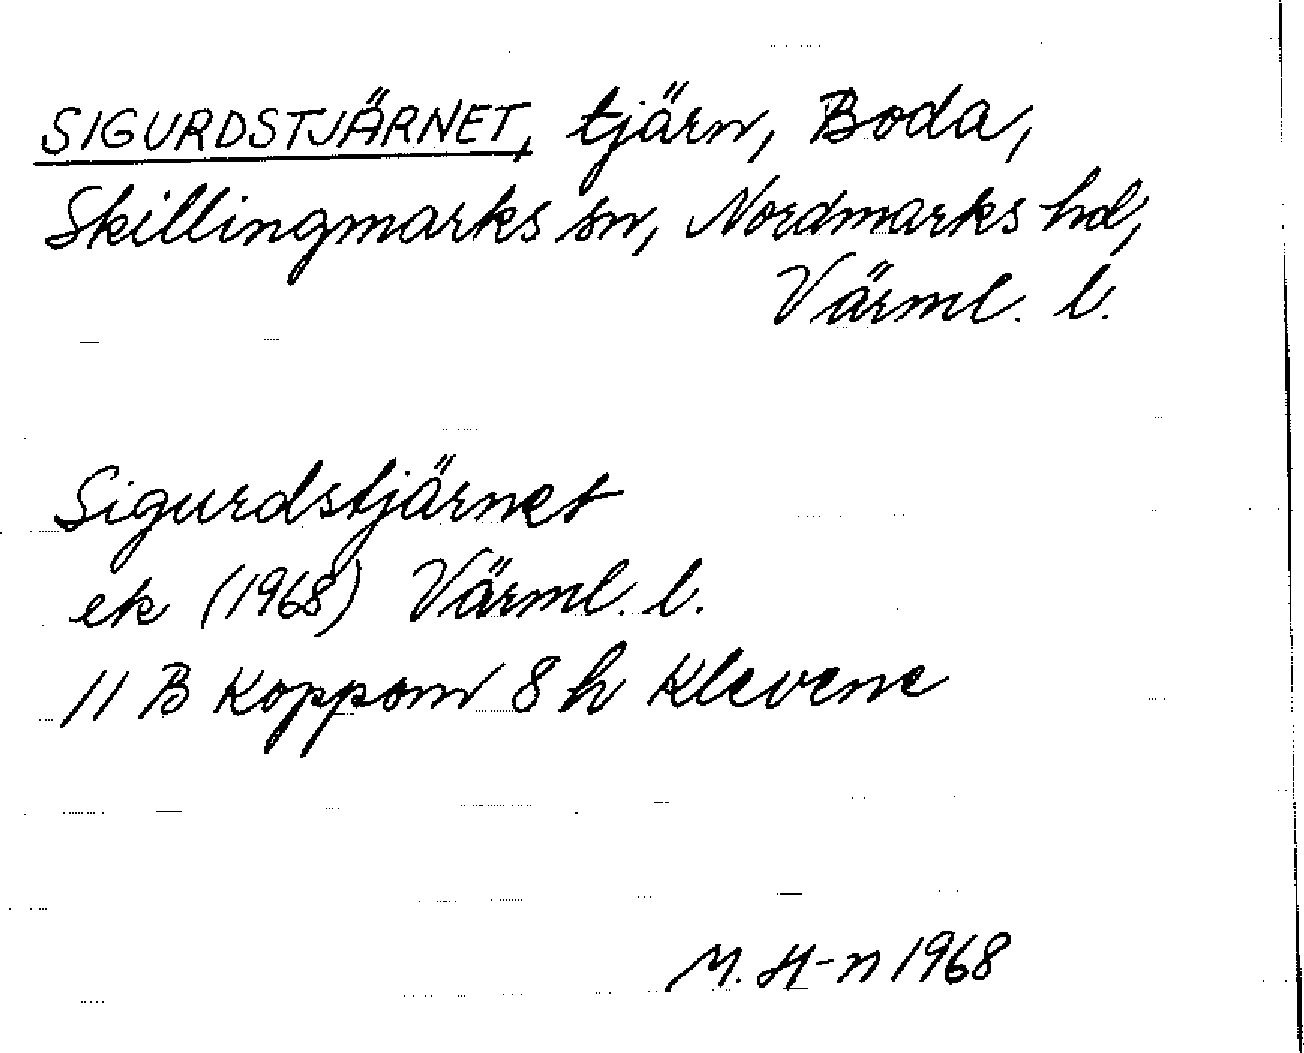 SIGURDSTJÄRNET, tjärn, Boda,
Skillingmarks sn, Nordmarks hd,
Värml. l.
Sigurdstjärnet
ek (1968) Värml. l.
11 B Koppom 8 h Klevene
M. H-n 1968